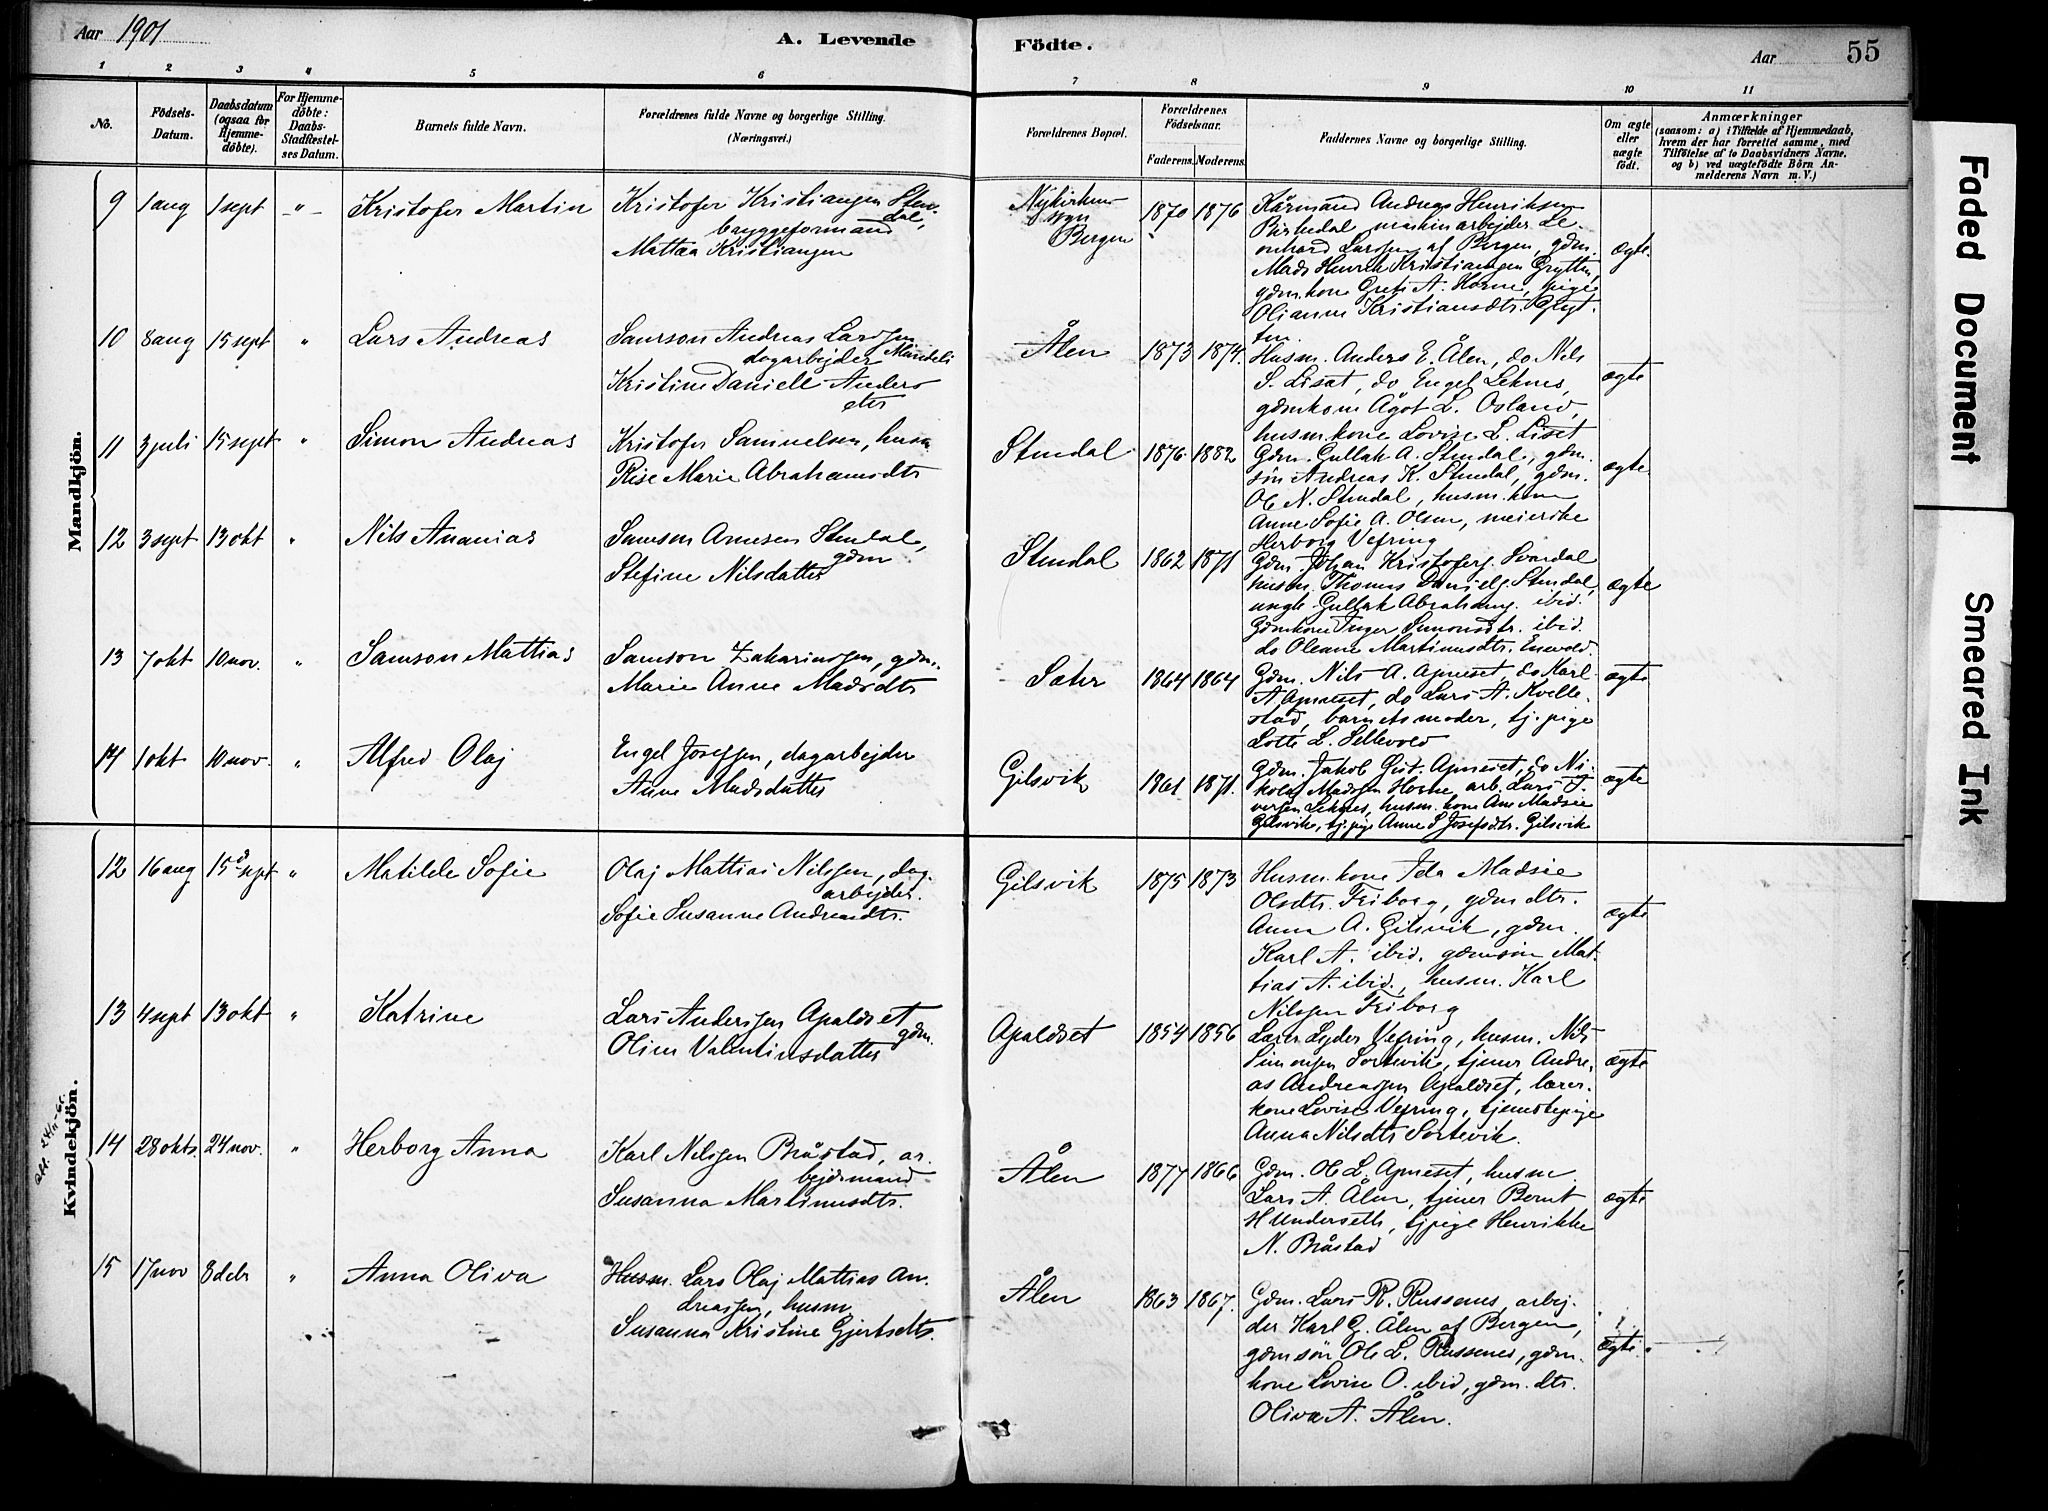 Aar 1901
A. Levende
Födte.
Aar
55
1 2 3 4 5 6 7 8 9 10 11
No.
Födsels-
Datum.
Daabsdatum
(ogsaa for
Hjemme-
döbte).
For Hjemme-
döbte:
Daabs-
Stadfæstel-
ses Datum.
Barnets fulde Navn.
Forældrenes fulde Navne og borgerlige Stilling.
(Næringsvei.)
Forældrenes Bopæl.
Forældrenes
Födselsaar.
Faderens. Moderens.
Faddernes Navne og borgerlige Stilling.
Om ægte
eller
uægte
födt.
Anmærkninger
(saasom: a) i Tilfælde af Hjemmedaab,
hvem der har forrettet samme, med
Tilföielse af to Daabsvidners Navne,
og b) ved uægtefödte Börn An-
melderens Navn m. V.)
Mandkjön.
9 1 aug 1 sept -"- Kristofer Martin
Kristofer Kristiansen Sten-
dal,
bryggeformand
Mattea Kristiansen
Nykirkens
sogn
Bergen
1870 1876
Kårmand Andreas Henriksen
Birkedal maskinarbejder Le-
onhard Larssen af Bergen, gdm.
Mads Henrik Kristiansen Grytten,
gdm.kone Greta A. Horne, pige
Olianne Kristiansdtr. Gryt-
ten.
ægte.
10 8 aug 15 sept " Lars Andreas
Samson Andreas Larssen
dagarbejder
Kristine Daniell Anders
dtr
Ålen
1873 1874.
Husm. Anders E. Ålen, do Nils
S. Liset, do Engel Leknes,
gdmkone Ågot L. Osland,
husm.kone Lovise L. Liset
ægte
11 3 juli 15 sept " Simon Andreas
Kristofer Samuelsen, husm
Rise Marie Abrahamsdtr
Stendal
1876 1882
Gdm. Gullak A. Stendal, gdm.
søn Andreas K. Stendal, gdm.
Ole N. Stendal, husm.kone
Anne Sofie A. Olsen, meierske
Herborg Vefring
ægte.
12 3 sept 13 okt " Nils Ananias
Samson Arnesen Stendal,
gdm
Stefine Nilsdatter
Stendal
1862 1871
Gdm. Johan Kristofers. Svardal
husm. Thomas Daniels. Stendal,
ungk. Gullak Abrahams. ibid.
Gdmkone Inger Simonsdtr. ibid.
do Oleane Martinusdtr. Enevold.
ægte
13 7 okt 10 nov. " Samson Mattias
Samson Zakariassen, gdm.
Marie Anne Madsdtr
Sæter
1864 1864
Gdm. Nils A. Apneset, do Karl
A Apneset, do Lars A. Kvelle-
stad, barnets moder, tj. pige
Lotte L. Sellevold
ægte
14 1 okt 10 nov. " Alfred Olaj
Engel Josefsen, dagarbejder
Anne Madsdatter
Gilsvik
1861 1871.
Gdm. Jakob Gut. Apneset, do Ni-
kolai Madssen Horne, arb. Lars I-
versen Leknes, husm. kone Ane Madsie
Gilsvik, tj.pige Anne S Josefsdtr. Gilsvik
ægte
Kvindekjön.
12 16 aug 15 sept " Matilde Sofie
Olaj Mattias Nilssen, dag-
arbejder.
Sofie Susanne Andreasdtr.
Gilsvik
1875 1873
Husm.kone Ida Madsie
Olsdtr. Friborg, gdm dtr.
Anna A. Gilsvik, gdm.
Karl A. ibid. gdmsøn Mat-
tias A. ibid., husm. Karl
Nilssen Friborg
ægte
13 4 sept 13 okt " Katrine
Lars Anderssen Apaldset
gdm.
Oline Valentinsdatter
Apaldset
1854 1856
Lærer Lyder Vefring, husm. Nils
Simonsen Sortevik, tjener Andre-
as Andreassen Apaldset, lærer-
kone Lovise Vefring, tjenestepige
Anna Nilsdtr Sortevik.
ægte
14 28 okt. 24 nov. " Herborg Anna
Karl Nilssen Bråstad, ar-
bejdsmand
Susanna Martinusdtr.
Ålen
1877 1866
Gdm. Ole L. Apneset, husm.
Lars A. Ålen, tjener Bernt
H Underseth, tj.pige Henrikke
N. Bråstad
ægte
15 17 nov 8 debr " Anna Oliva
Husm. Lars Olaj Mattias An-
dreassen, husm
Susanna Kristine Gjertsdtr.
Ålen
1863 1867.
Gdm. Lars R. Russenes, arbej-
der Karl G. Ålen af Bergen,
gdmsøn Ole L. Russenes, gdm.
kone Lovise O. ibid, gdm. dtr.
Oliva A. Ålen.
ægte
Faded Document
Smeared Ink